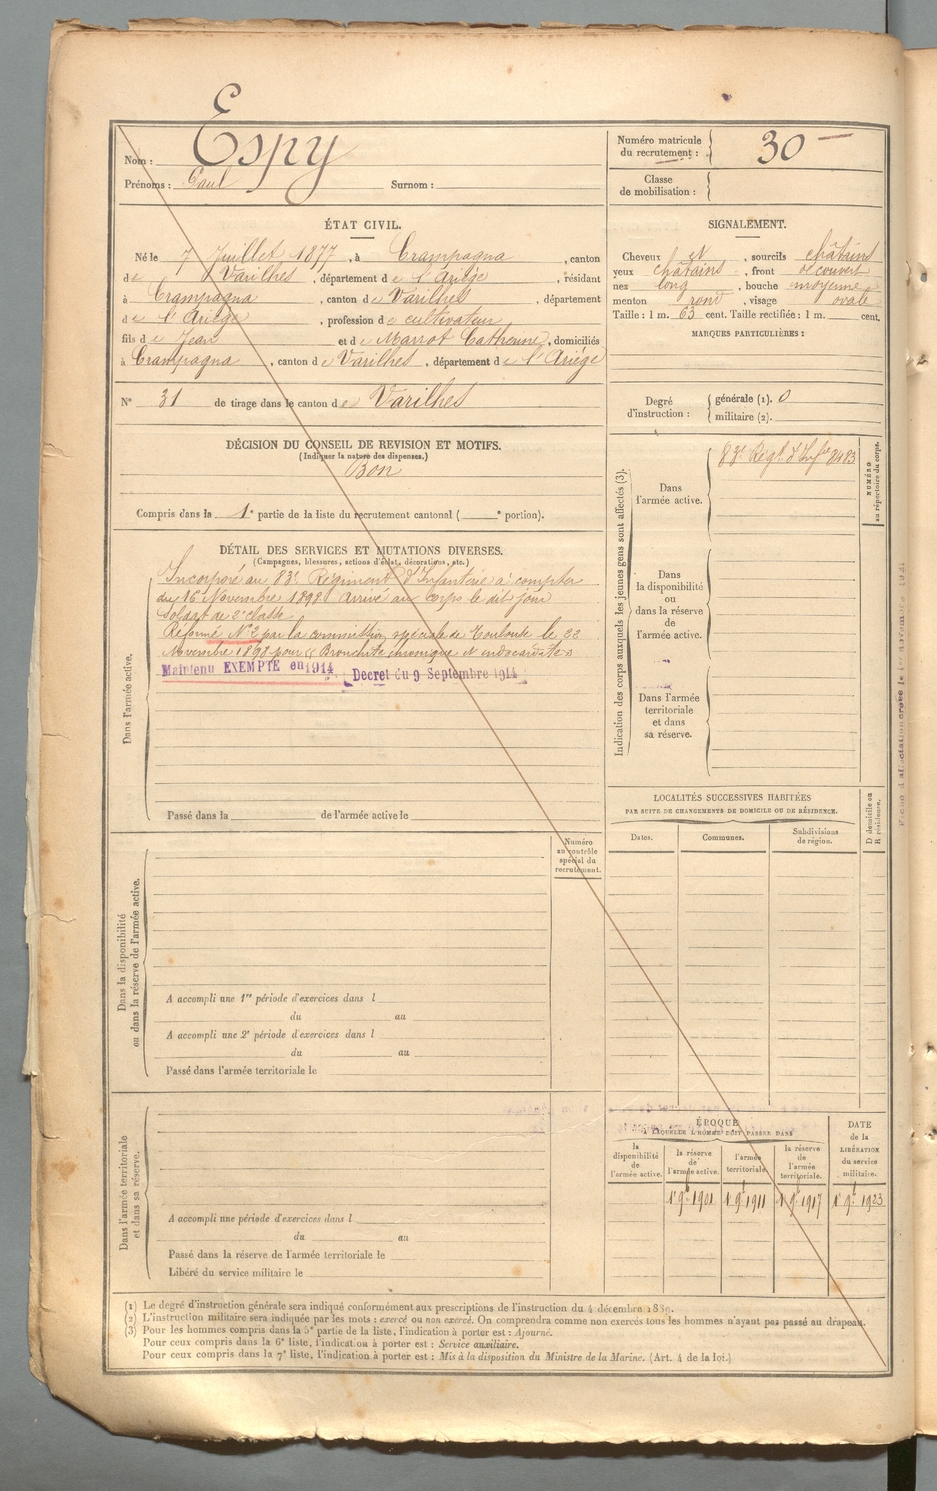 Nom : Espy
Prénoms : Paul Surnom :
Numéro matricule
du recrutement : 30
Classe
de mobilisation :
ÉTAT CIVIL.
Né le 7 Juillet 1877, à Crampagna, canton
de Varilhes, département de l'Ariège, résidant
à Crampagna, canton de Varilhes, département
de l'Ariège, profession de cultivateur
fils de Jean et de Marrot Catherine, domiciliés
à Crampagna, canton de Varilhes, département de l'Ariège
N° 31 de tirage dans le canton de Varilhes
SIGNALEMENT.
Cheveux et, sourcils châtains
yeux châtains, front découvert
nez long, bouche moyenne
menton rond, visage ovale
Taille : 1 m. 63 cent. Taille rectifiée : 1 m. cent.
MARQUES PARTICULIÈRES :
Degré
d'instruction :
générale (1). 0
militaire (2).
DÉCISION DU CONSEIL DE REVISION ET MOTIFS.
(Indiquer la nature des dispenses.)
Bon
Compris dans la 1e partie de la liste du recrutement cantonal ( e portion).
DÉTAIL DES SERVICES ET MUTATIONS DIVERSES.
(Campagnes, blessures, actions d'éclat, décorations, etc.)
Dans l'armée active.
Incorporé au 83e Régiment d'Infanterie à compter
du 16 Novembre 1898. Arrivé au corps le dit jour
Soldat de 2e classe.
Réformé N°2 par la commission spéciale de Toulouse le 22
Novembre 1898 pour Bronchite chronique et endocardite
Maintenu EXEMPTÉ en 1914 Decret du 9 Septembre 1914
Passé dans la de l'armée active le
Indication des corps auxquels les jeunes gens sont affectés (3).
Dans
l'armée active.
83e Regt d'Infie 8483
NUMÉRO
au répertoire du corps.
Dans
la disponibilité
ou
dans la réserve
de
l'armée active.
Dans l'armée
territoriale
et dans
sa réserve.
LOCALITÉS SUCCESSIVES HABITÉES
PAR SUITE DE CHANGEMENTS DE DOMICILE OU DE RÉSIDENCE.
Dates.
Communes.
Subdivisions
de région.
D domicile ou
R résidence.
Dans la disponibilité
ou dans la réserve de l'armée active.
Numéro
au contrôle
spécial du
recrutement.
A accompli une 1re période d'exercices dans l
du au
A accompli une 2e période d'exercices dans l
du au
Passé dans l'armée territoriale le
Dans l'armée territoriale
et dans sa réserve.
A accompli une période d'exercices dans l
du au
Passé dans la réserve de l'armée territoriale le
Libéré du service militaire le
ÉPOQUE
À LAQUELLE L'HOMME DOIT PASSER DANS
la
disponibilité
de
l'armée active.
la réserve
de
l'armée active.
l'armée
territoriale.
la réserve
de
l'armée
territoriale.
DATE
de la
LIBÉRATION
du service
militaire.
1 9bre 1901 1 9bre 1911 1 9bre 1917 1 9bre 1923
(1) Le degré d'instruction générale sera indiqué conformément aux prescriptions de l'instruction du 4 décembre 1889.
(2) L'instruction militaire sera indiquée par les mots : exercé ou non exercé. On comprendra comme non exercés tous les hommes n'ayant pas passé au drapeau.
(3) Pour les hommes compris dans la 5e partie de la liste, l'indication à porter est : Ajourné.
Pour ceux compris dans la 6e liste, l'indication à porter est : Service auxiliaire.
Pour ceux compris dans la 7e liste, l'indication à porter est : Mis à la disposition du Ministre de la Marine. (Art. 4 de la loi.)